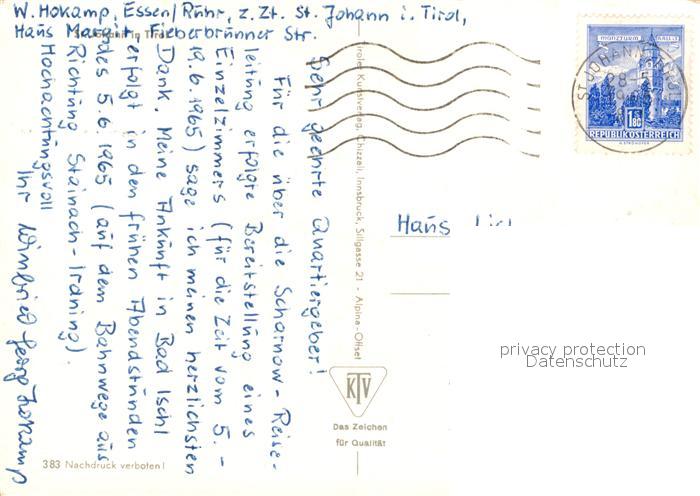 W. Hokamp, Essen/Ruhr, z. Zt. St. Johann i. Tirol,
Haus Margit, Fieberbrünner Str.
Sehr geehrte Quartiergeber!
Für die über die Scharnow-Reise-
leitung erfolgte Bereitstellung eines
Einzelzimmers (für die Zeit vom 5.-
19.6.1965) sage ich meinen herzlichsten
Dank. Meine Ankunft in Bad Ischl
erfolgt in den frühen Abendstunden
des 5.6.1965 (auf dem Bahnwege aus
Richtung Stainach-Irdning).
Hochachtungsvoll
Ihr Winfried Georg Hokamp
Tiroler Kunstverlag, Chizzali, Innsbruck, Sillgasse 21 - Alpina-Offset
KTV
Das Zeichen
für Qualität
383 Nachdruck verboten!
MÜNZTURM HALL I.T.
1.80
REPUBLIK ÖSTERREICH
ST. JOHANN
Haus
privacy protection
Datenschutz